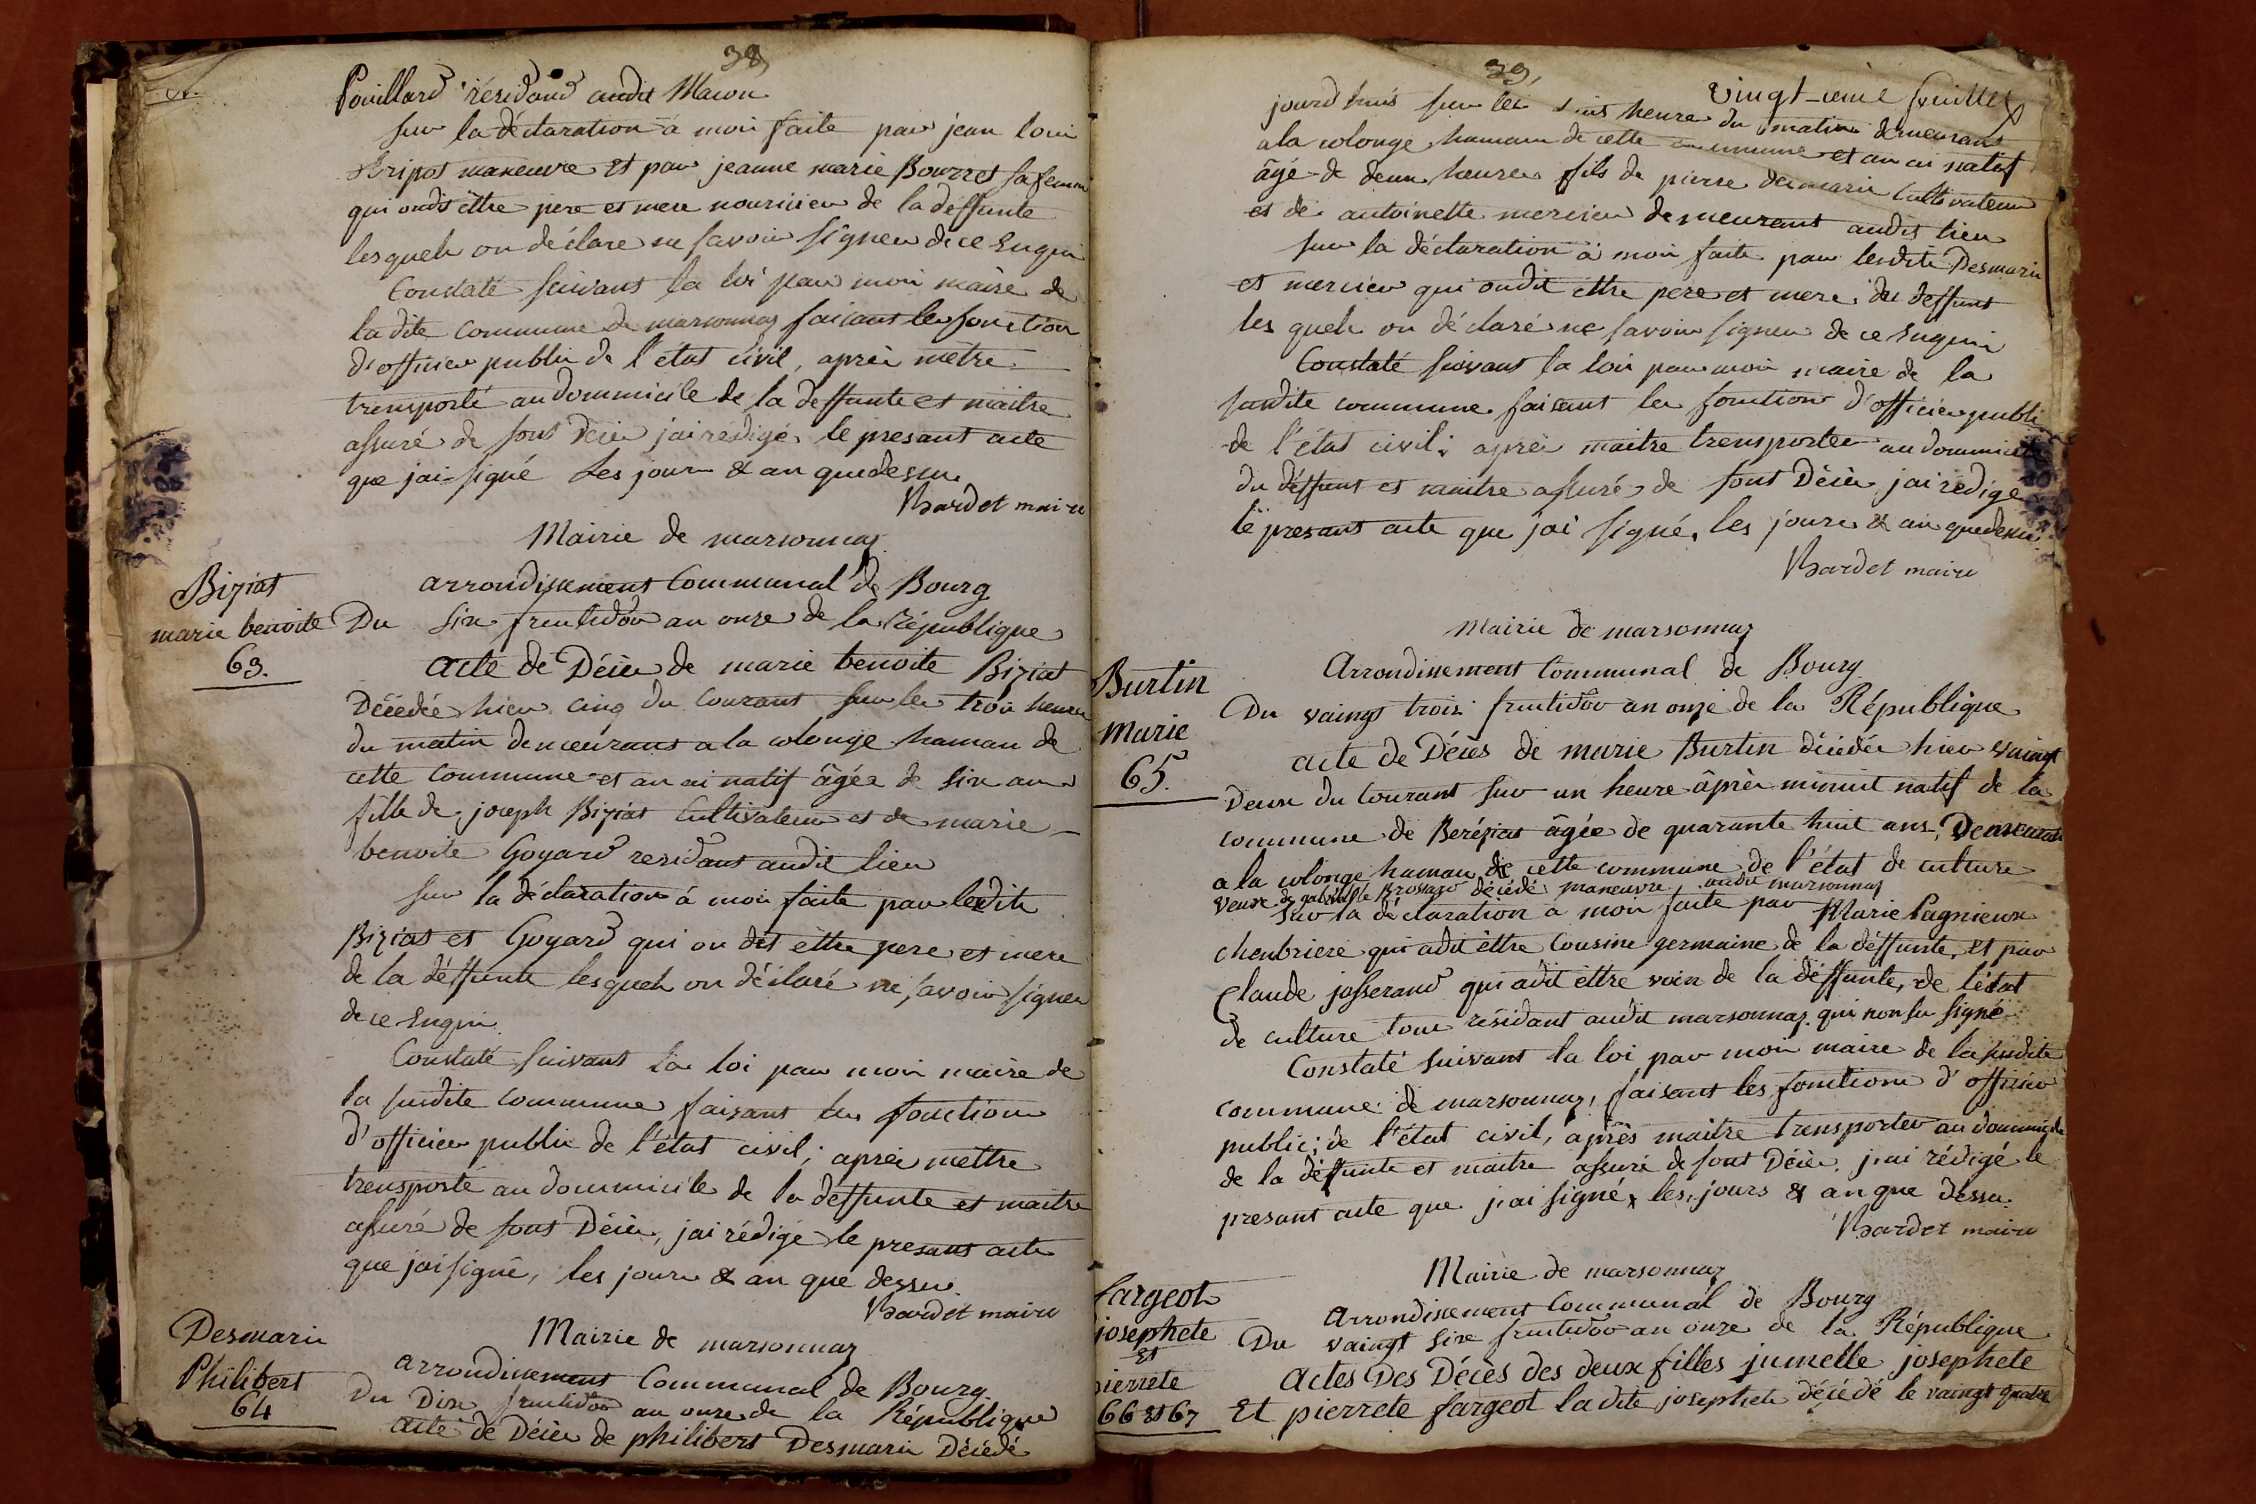 38
Pouillard résidand audit Macon
sur la déclaration à moi faite par jean loui
maneuvre et par jeanne marie Bourret sa femme
qui ondit êttre pere et mere nouricier de la déffunte
lesquels on déclare ne savoir signer de ce Enquis
Constaté suivant la loi par moi maire de
la dite commune de marsonnaz faisant les fonction
d'officier public de l'état civil, après mètre
transporté au dommicile de la deffunte et maitre
assuré de sont décès jai rédigé le presant acte
que jai signé les jours & an quedessu
Bardet maire
Mairie de marsonnaz
Biziat
marie benoite
63.
arrondissement Communal de Bourg
Du six fructidor an onze de la République
acte de Décès de marie benoite Biziat
Décédée hier cinq du courant sur les trois heures
du matin demeurant a la colonge hamau de
cette commune et an ai natif âgée de six ans
fille de joseph Biziat Cultivateur et de marie
benoite Goyard residant audit lieu
sur la déclaration à moi faite par lesdits
Biziat et Goyard qui on dit êttre pere et mere
de la déffunte lesquels on déclaré ne savoir signer
de ce Enquis
Constaté suivant la loi par moi maire de
la susdite commune faisant les fonction
d'officier public de l'état civil; après mettre
transporté au dommicile de la deffunte et maitre
assuré de sont Décès, jai rédigé le presant acte
que jai signé, les jours & an que dessu
Bardet maire
Desmaris
Philibert
64
Mairie de marsonnaz
arrondissement Communal de Bourg
Du Dix fructidor an onze de la République
acte de Décès de philibert Desmaris Décédé
39
Vingt-unie feuillet
jourd'huis sur les heure du matin demeurant
a la colonge hamau de cette commune et an ai natif
âgé de deux heures fils de pierre desmaris Cultivateur
et de antoinette mercier demeurant audit lieu
sur la déclaration à moi faite par lesdits Desmaris
et mercier qui ondit êttre pere et mere du deffunt
les quels on déclaré ne savoir signer de ce Enquis
Constaté suivant la loi par moi maire de la
susdite commune faisant les fonction d'officier publi
de l'état civil; après maitre transporter au dommicile
du déffunt et maitre assuré de sont Décès jai rédigé
le presant acte que jai signé, les jours & an quedessu
Bardet maire
Mairie de marsonnaz
Arrondissement Communal de Bourg
Burtin
Marie
65.
Du vaingt trois fructidor an onze de la République
acte de Décès de marie Burtin décédée hier vaingt
Deux du courant sur un heure âprès minuit natif de la
commune de Beréziat âgée de quarante huit ans, Demeurant
a la colonge hamau de cette commune de l'état de culture
veuve de gabriel Brossard décédé maneuvre audit marsonnaz
sur la déclaration à moi faite par Marie Pagnieux
chenbriere qui adit êttre Cousine germaine de la déffunte, et par
Claude josserand qui adit êttre voisin de la déffunte, de l'état
de culture tous résidant audit marsonnaz qui non su signé
Constaté suivant la loi par moi maire de la susdite
commune de marsonnaz, faisant les fonctions d'officier
public; de l'état civil, après maitre transporter au dommicile
de la déffunte et maitre assuré de sont Décès. j'ai rédigé le
presant acte que j'ai signé, les jours & an que dessu.
Bardet maire
Mairie de marsonnaz
Arrondissement Communal de Bourg
fargeot
josephete
Et
pierrete
66 et 67
Du vaingt six fructidor an onze de la République
Actes Des Décès des deux filles jumelle josephete
Et pierrete fargeot la dite josephete décédé le vaingt quatre